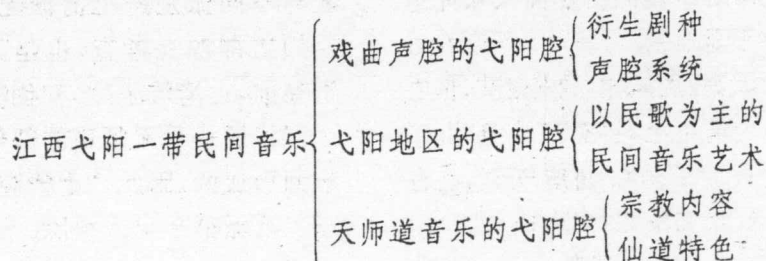 江西弋阳一带民间音乐
戏曲声腔的弋阳腔
衍生剧种
声腔系统
弋阳地区的弋阳腔
以民歌为主的
民间音乐艺术
天师道音乐的弋阳腔
宗教内容
仙道特色